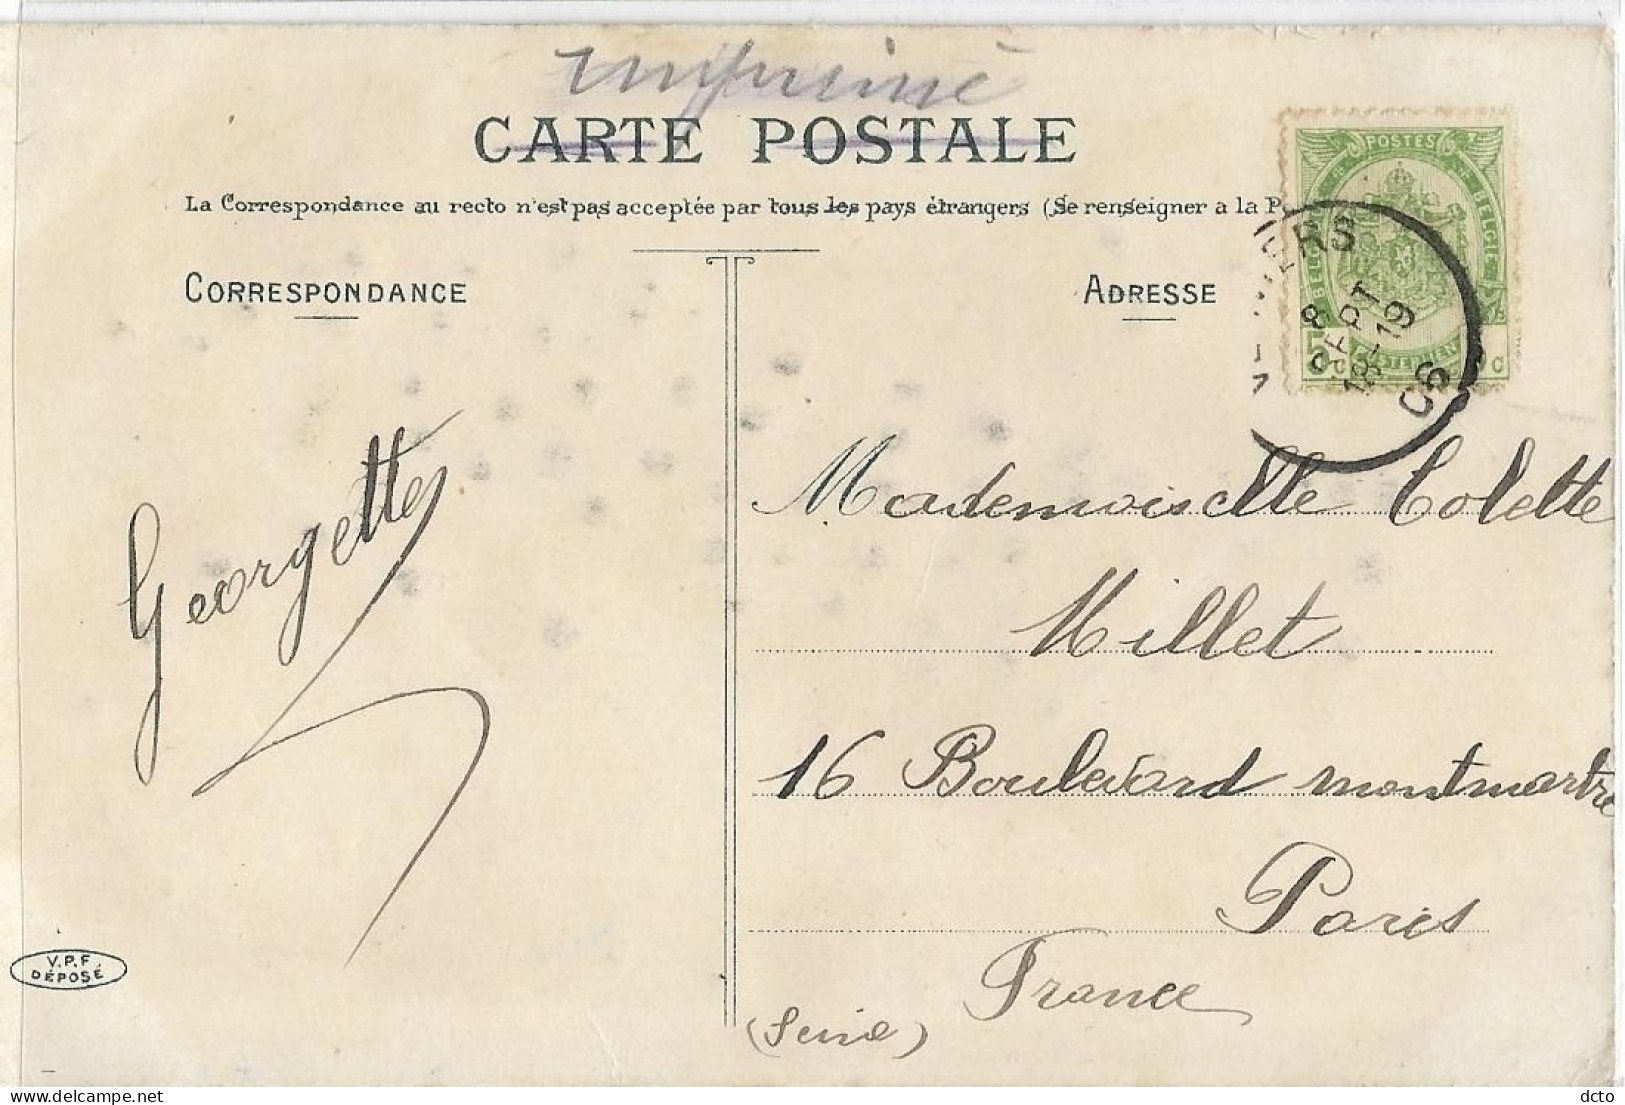 imprimé
CARTE POSTALE
La Correspondance au recto n'est pas acceptée par tous les pays étrangers (Se renseigner a la P
CORRESPONDANCE
ADRESSE
POSTES
BELGIE
5 C
8
SEPT
18-19
06
Georgette
Mademoiselle Colette
Millet
16 Boulevard montmartre
Paris
France
(Seine)
V.P.F
DÉPOSÉ
dcto